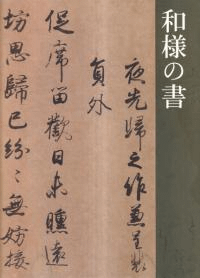 和様の書
夜先歸之作兼呈
員外
促席留歡日未曛遠
坊思歸已紛々無妨按